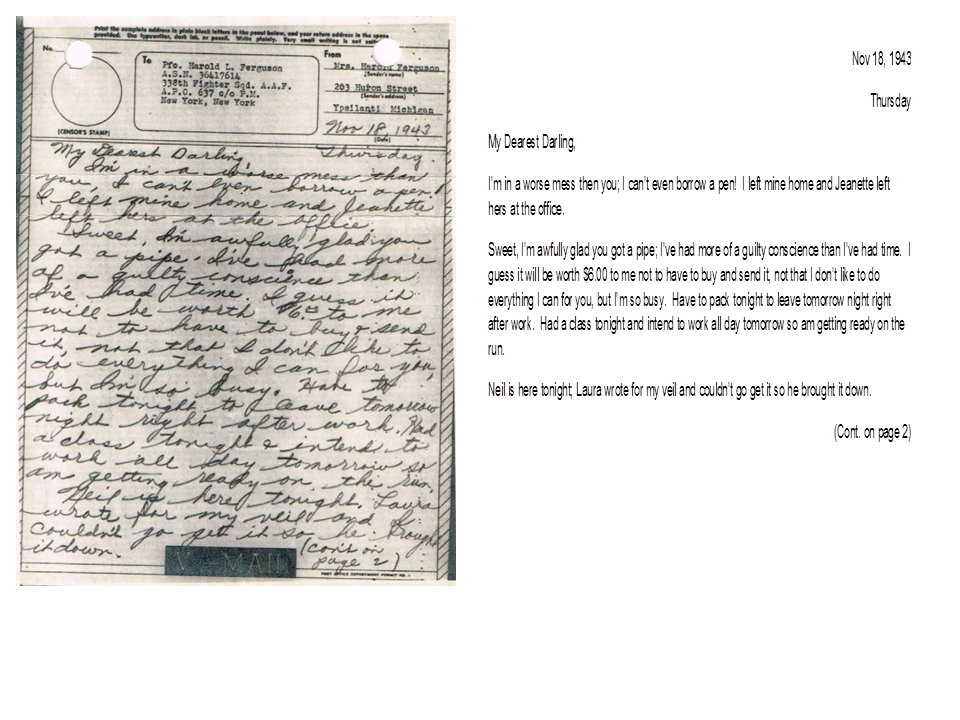 Print the complete address in plain block letters in the panel below, and your return address in the space
provided. Use typewriter, dark ink, or pencil. Write plainly. Very small writing is not
No.
(CENSOR'S STAMP)
To
Pfc. Harold L. Ferguson
A.S.N. 36417614
338th Fighter Sqd. A.A.F.
A.P.O. 637 c/o P.M.
New York, New York
From
Mrs. Harold Ferguson
(Sender's name)
203 Huron Street
(Sender's address)
Ypsilanti Michigan
Nov 18, 1943
(Date)
My Dearest Darling, Thursday.
I'm in a worse mess than
you, I can't even borrow a pen!
I left mine home and Jeanette
left hers at the office.
Sweet, I'm awfully glad you
got a pipe. I've had more
of a guilty conscience than
I've had time. I guess it
will be worth $6.00 to me
not to have to buy & send
it, not that I don't like to
do everything I can for you,
but I'm so busy. Have to
pack tonight to leave tomorrow
night right after work. Had
a class tonight & intend to
work all day tomorrow so
am getting ready on the run.
Neil is here tonight. Laura
wrote for my veil and
couldn't go get it so he brought
it down. (con't on
page 2)
V··· – MAIL
POST OFFICE DEPARTMENT PERMIT NO. 1
Nov 18, 1943
Thursday
My Dearest Darling,
I'm in a worse mess then you; I can't even borrow a pen! I left mine home and Jeanette left
hers at the office.
Sweet, I'm awfully glad you got a pipe; I've had more of a guilty conscience than I've had time. I
guess it will be worth $6.00 to me not to have to buy and send it, not that I don't like to do
everything I can for you, but I'm so busy. Have to pack tonight to leave tomorrow night right
after work. Had a class tonight and intend to work all day tomorrow so am getting ready on the
run.
Neil is here tonight; Laura wrote for my veil and couldn't go get it so he brought it down.
(Cont. on page 2)